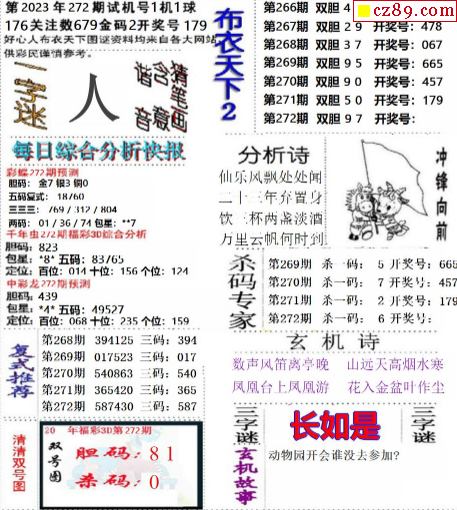 第 2023 年 272 期试机号1机1球
176关注数679金码2开奖号 179
好心人布衣天下图谜资料均来自各大网站
供彩民谨慎参考。
一字迷
人
谐含猜
音意笔画
每日综合分析快报
彩蝶272期预测
胆码：金7 银3 铜0
五码复式：18760
三三三：769 / 312 / 804
两码：01 / 36 / 74 包星：**7
千年虫272期福彩3D综合分析
胆码：823
包星：*8* 五码：83765
定位：百位：014 十位：156 个位：124
中彩龙272期预测
胆码：439
包星：*4* 五码：49527
定位：百位：068 十位：235 个位：159
复式推荐
第268期 394125 三码：394
第269期 017523 三码：017
第270期 540863 三码：540
第271期 365420 三码：365
第272期 587430 三码：587
清清双号图
20 年福彩3D第272期
双号图
胆码：81
杀码：0
布衣天下2
cz89.com
第266期 双胆 4
第267期 双胆 2 9 开奖号：478
第268期 双胆 3 7 开奖号：067
第269期 双胆 9 5 开奖号：665
第270期 双胆 9 0 开奖号：457
第271期 双胆 5 0 开奖号：179
第272期 双胆 9 7 开奖号：
分析诗
仙乐风飘处处闻
二十三年弃置身
饮三杯两盏淡酒
万里云帆何时到
冲锋向前
杀码专家
第269期 杀一码： 5 开奖号：665
第270期 杀一码： 7 开奖号：457
第271期 杀一码： 2 开奖号：179
第272期 杀一码： 6 开奖号：
玄机诗
数声风笛离亭晚 山远天高烟水寒
凤凰台上凤凰游 花入金盆叶作尘
三字谜
长如是
三字谜
玄机故事
动物园开会谁没去参加?